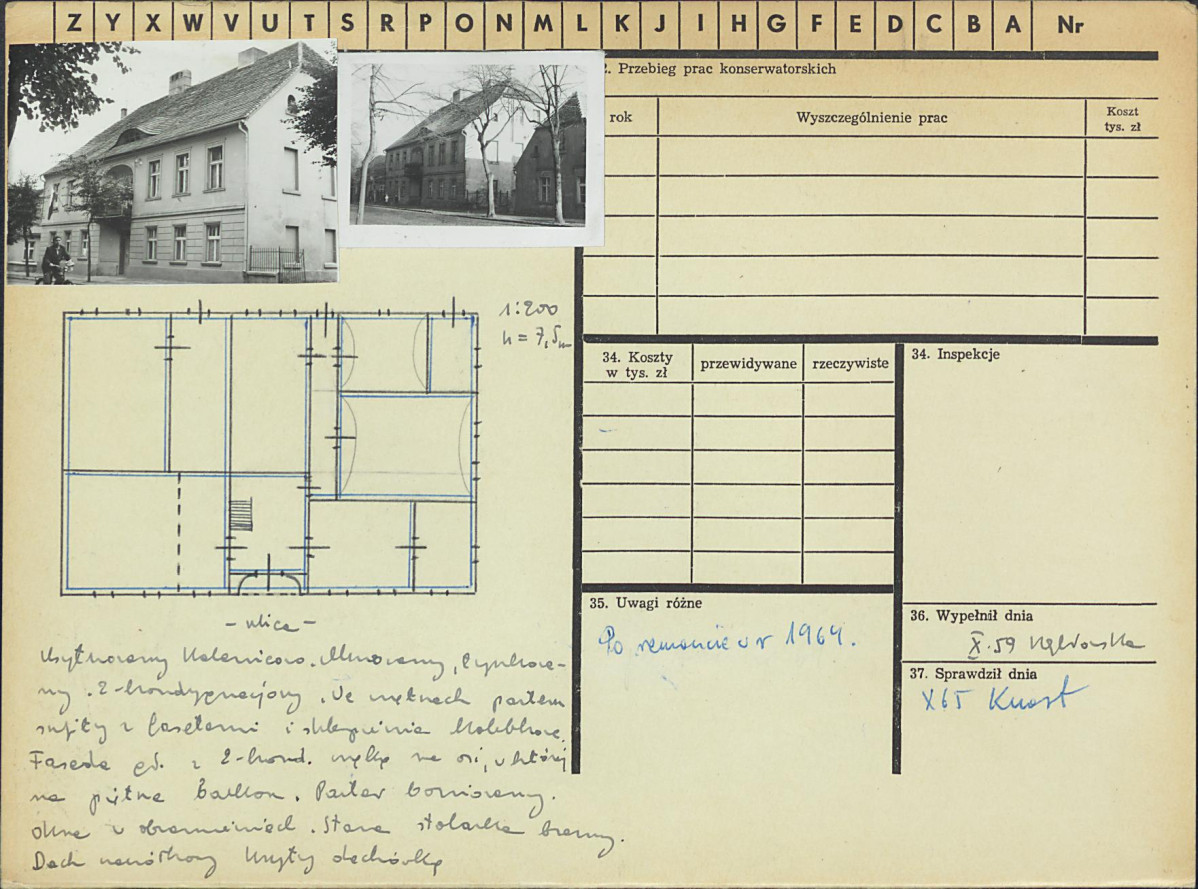 Z Y X W V U T S R P O N M L K J I H G F E D C B A Nr
2. Przebieg prac konserwatorskich
rok
Wyszczególnienie prac
Koszt
tys. zł
1:200
h = 7,5m
- ulica -
34. Koszty
w tys. zł
przewidywane
rzeczywiste
34. Inspekcje
35. Uwagi różne
Po remoncie w r 1964.
36. Wypełnił dnia
X.59
37. Sprawdził dnia
X 65 Knast
Usytuowany kalenicowo. Murowany, tynkowa-
ny. 2-kondygnacjowy. We wnętrzach parteru
sufity z fasetami i sklepienia kolebkowe.
Fasada gł. z 2-kond. wnęką na osi, w której
na piętrze balkon. Parter boniowany.
Okna w obramieniach. Stara stolarka bramy.
Dach kryty dachówką